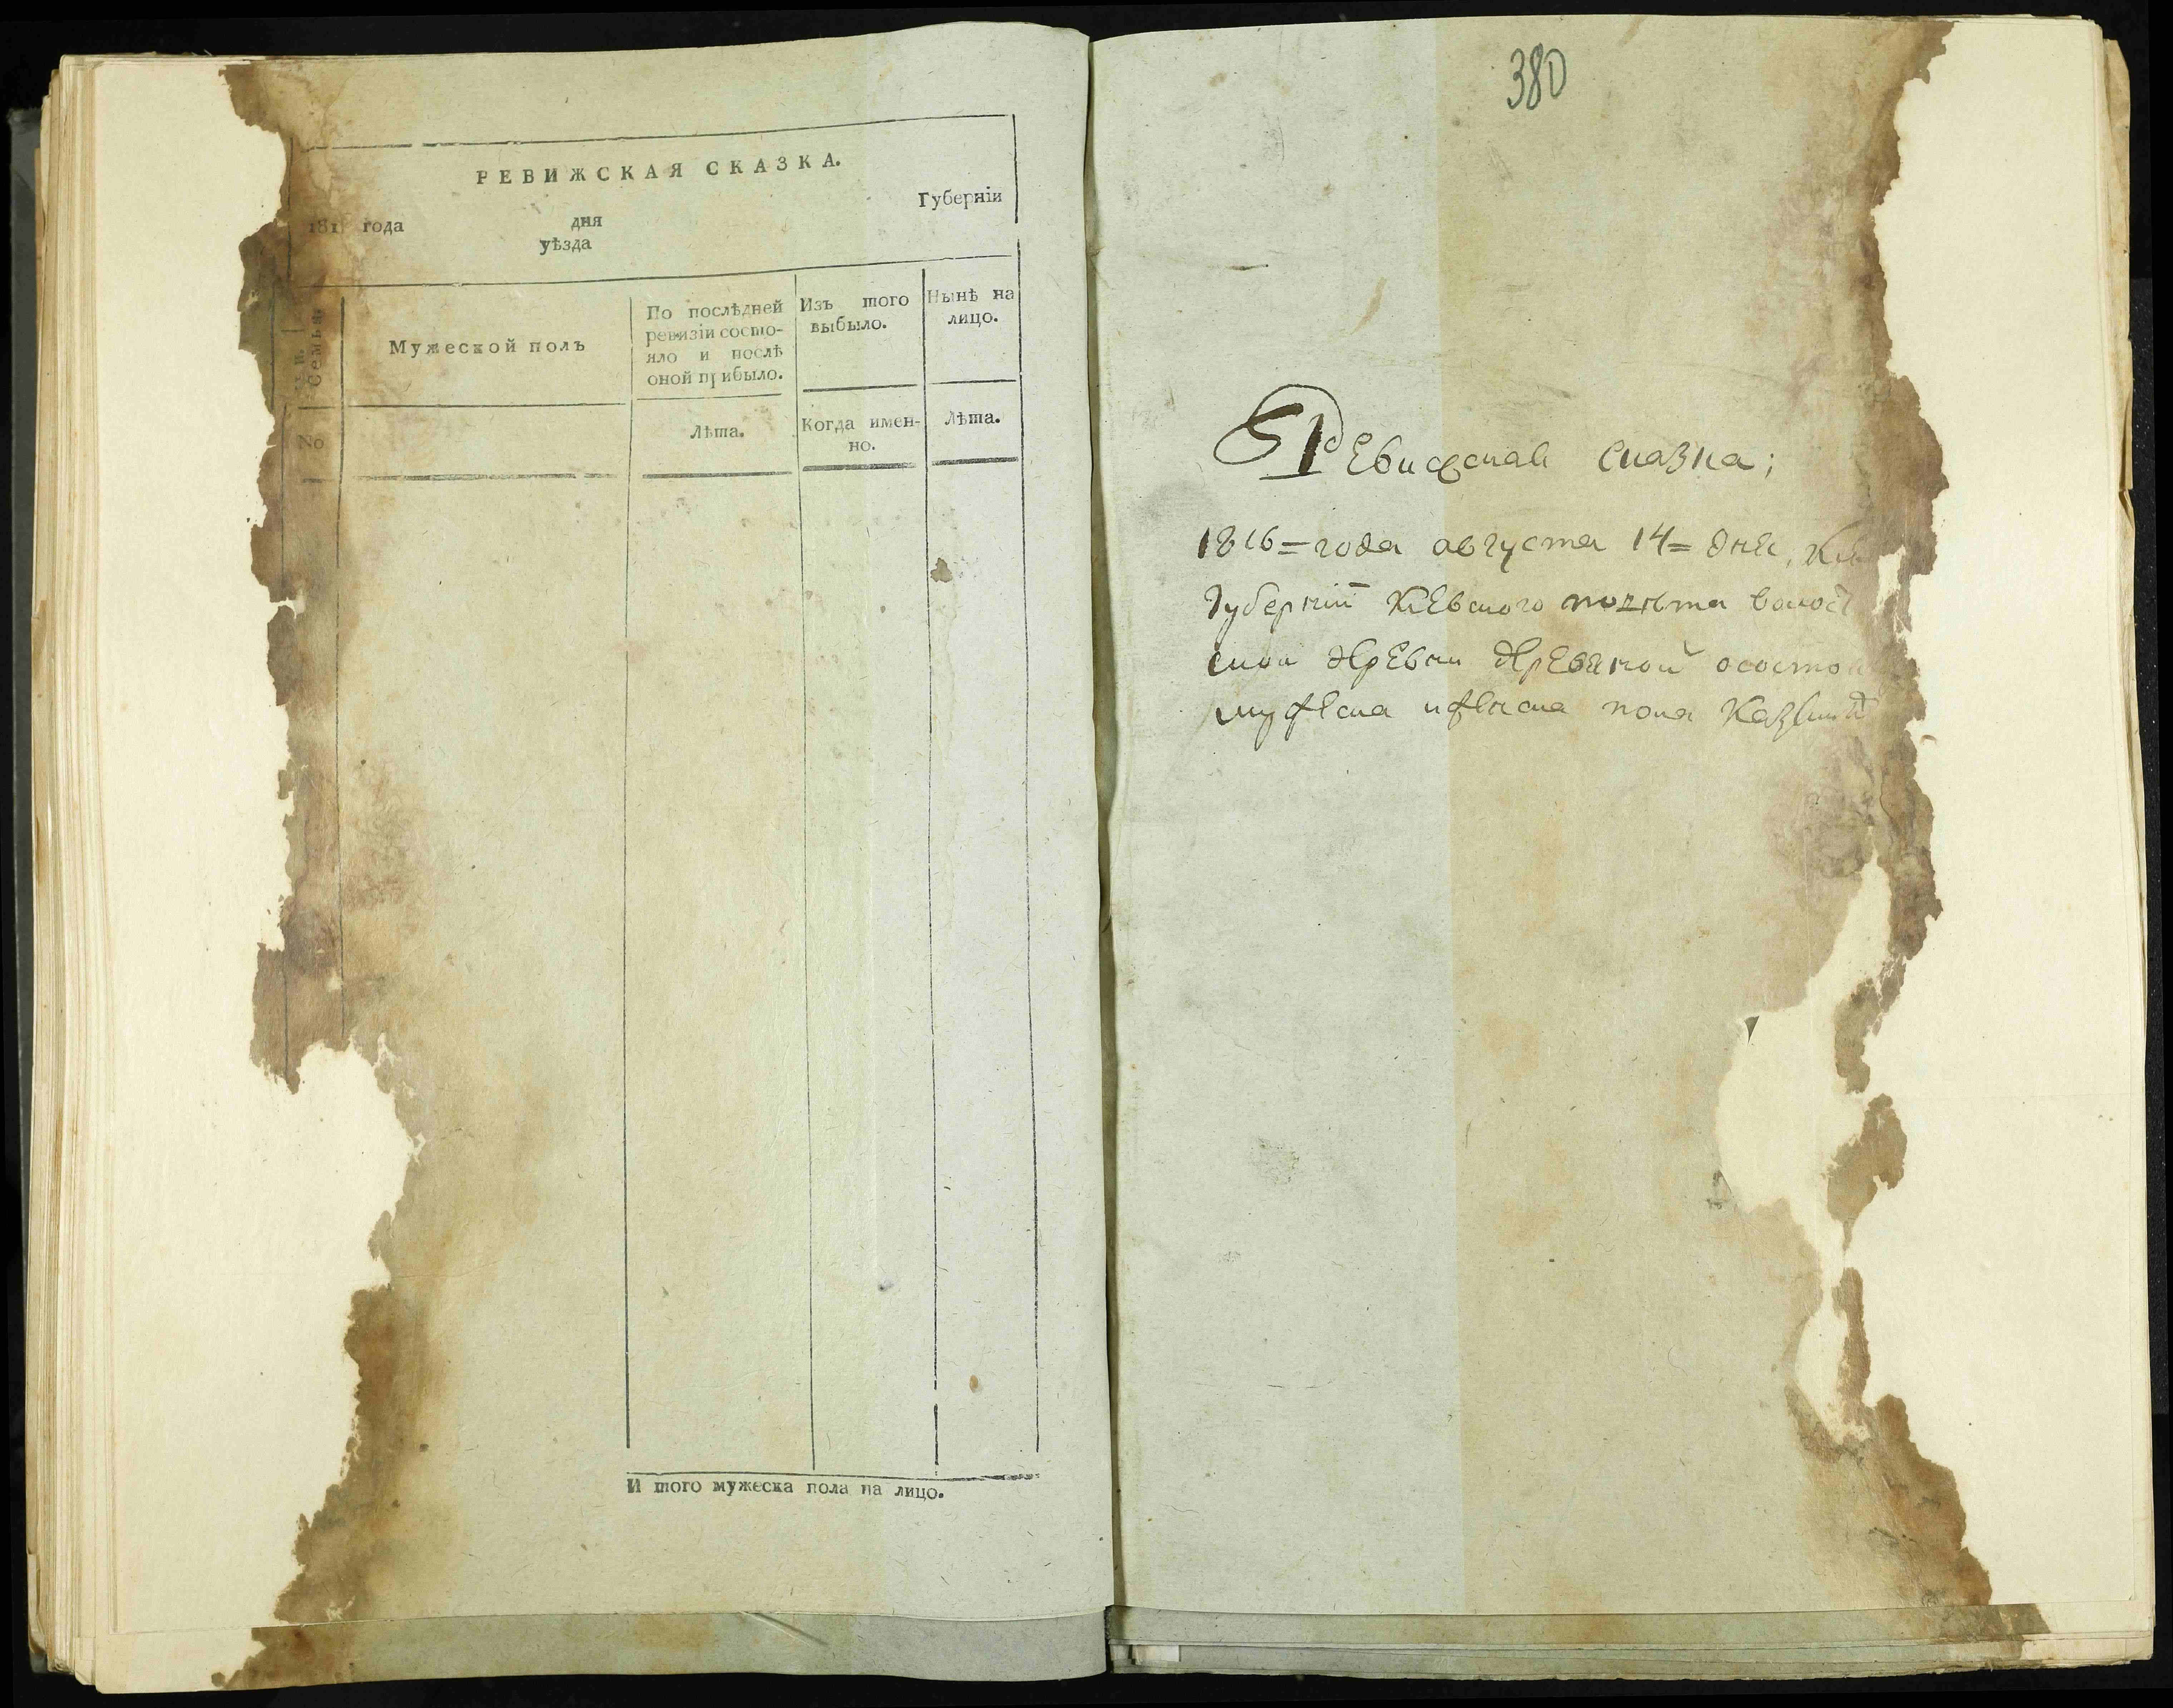 РЕВИЖСКАЯ СКАЗКА.
181 года дня Губерніи
уѣзда
Семьи.
No
Мужеской полъ
По послѣдней
ревизіи состо-
яло и послѣ
оной прибыло.
Лѣта.
Изъ того
выбыло.
Когда имен-
но.
Нынѣ на
лицо.
Лѣта.
И того мужеска пола на лицо.
380
Ревижская Сказка;
1816=года августа 14= дня,
Губернии Киевского повѣта
деревни деревяной
мужеска и женска пола